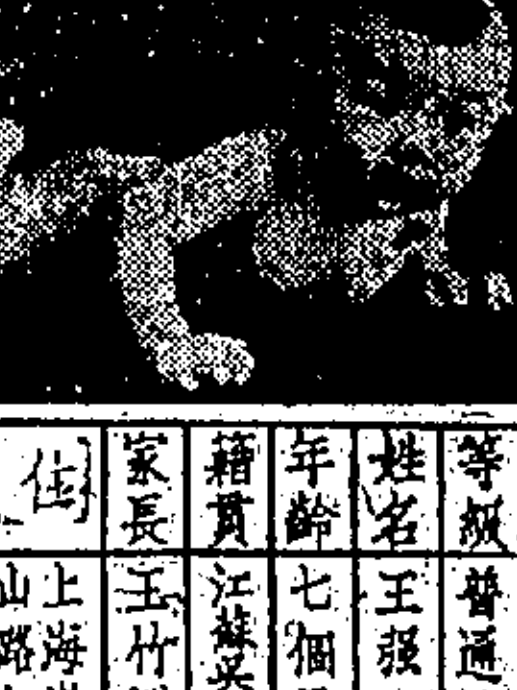 等級
普通
姓名
王強
年齡
七個
籍貫
江蘇吳
家長
王竹
住
上海
山路